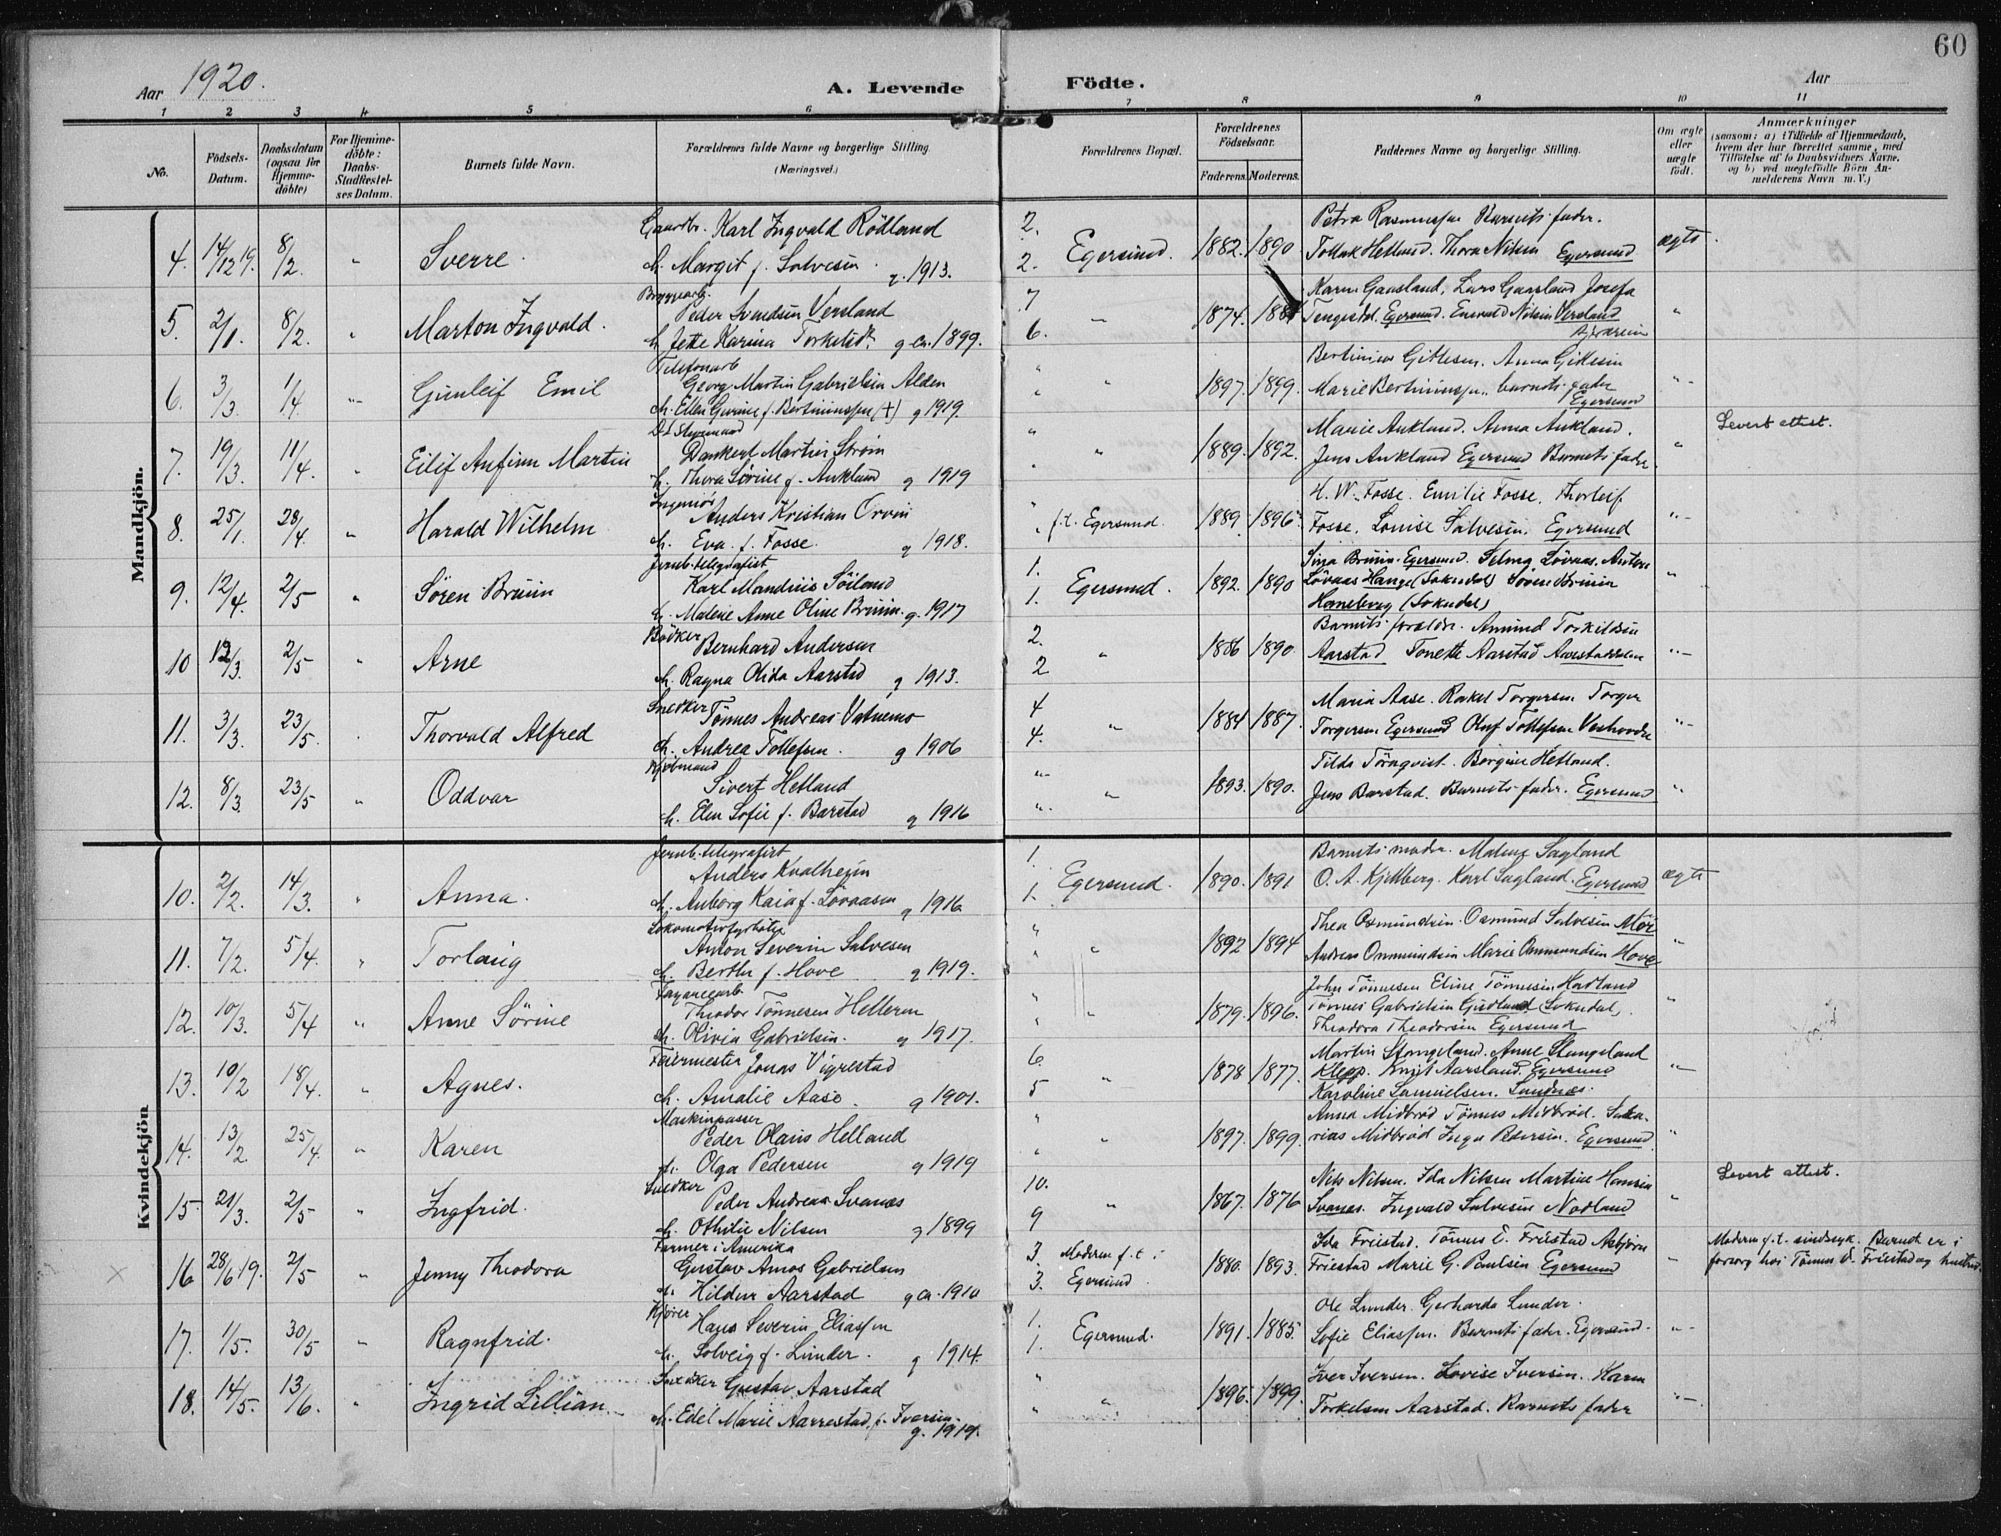 60
Aar 1920.
A. Levende Födte.
Aar
1 2 3 4 5 6 7 8 9 10 11
No.
Födsels-
Datum.
Daabsdatum
(ogsaa for
Hjemme-
döbte)
For Hjemme-
döbte:
Daabs-
Stadfæstel-
ses Datum.
Barnets fulde Navn.
Forældrenes fulde Navne og borgerlige Stilling.
(Næringsvei.)
Forældrenes Bopæl.
Forældrenes
Födselsaar.
Faderens. Moderens.
Faddernes Navne og borgerlige Stilling.
Om ægte
eller
uægte
födt.
Anmærkninger
(saasom: a) i Tilfælde af Hjemmedaab,
hvem der har forrettet samme, med
Tilföielse af to Daabsvidners Navne,
og b) ved uægtefödte Börn An-
melderens Navn m. V.)
Mandkjön.
4. 14/12 19. 8/2. " Sverre.
Gaardbr. Karl Ingvald Rödland
h. Margit f. Salvesen g. 1913.
2.
2. Egersund. 1882. 1890
Petra Rasmussen Barnets fader.
Tollak Hetland. Thora Nilsen Egersund
ægte
5. 2/1. 8/2. " Marton Ingvald.
Bryggearb.
Peder Svendsen Versland
h. Jette Karina Torkelsd. g Ca. 1899.
7
6. " 1874.
Karen Gaasland, Lars Gaasland Josefa
Tengesdal. Egersund. Enevald Nilsen Versland
"
6. 3/3. 1/4. " Gunleif Emil
Telefonarb
Georg Martin Gabrielsen Alden
h. Ellen Gurine f. Bertinussen (+) g 1919.
" 1897. 1899.
Bertinius Gittesen. Anna Gittesen
Marie Bertinussen, barnets fader
Egersund
"
7. 19/3. 11/4. " Eilif Anfinn Martin
D.S. Styrmand
Dankert Martin Strøm
h. Thora Sørine f. Aukland g 1919
" 1889. 1892.
Marie Aukland. Anna Aukland.
Jens Aukland Egersund Barnets fader.
"
Levert attest.
8. 25/1. 28/4. " Harald Wilhelm
Ingeniør
Anders Kristian Orvin
h. Eva f. Fosse. g 1918.
" f.t. Egersund. 1889. 1896.
H. W. Fosse. Emilie Fosse. Thorleif
Fosse. Louise Salvesen. Egersund
"
9. 12/4. 2/5. " Sören Bruun
Jernb.telegrafist
Karl Mandius Söiland
h. Malene Anne Oline Bruun. g. 1917
1.
1. Egersund. 1892. 1890
Sina Bruun. Egersund. Selma Lövaas. Anton
Lövaas Hauge (Sokndal) Sören Bruun
(Sokndal)
"
10 12/3. 2/5 " Arne
Bødker
Bernhard Andersen
h. Ragna Olida Aarstad g 1913.
2.
2 " 1886 1890.
Barnets forældr. Amund Torkildsen
Aarstad Tonette Aarstad
"
11. 3/3. 23/5. Thorvald Alfred
Snedker
Tönnes Andreas Vatnemo
h. Andrea Tollefsen. g 1906
4
4. " 1884 1887.
Maria Aase. Rakel Torgersen Torger
Torgersen Egersund Oluf Tollefsen
"
12. 8/3 23/5 " Oddvar
Kjöbmand
Sivert Hetland
h. Elen Sofie f. Barstad g 1916
" 1893. 1890.
Tilda Törnqvist. Borgine Hetland.
Jens Barstad. Barnets fader. Egersund
"
Kvindekjön
10. 2/2. 14/3. " Anna.
Jernb.telegrafist
Anders Kvalheim
h. Anborg Kaia f. Lövaasen g 1916
1.
1. Egersund. 1890. 1891
Barnets moder. Malene Sagland
O. A. Kjellberg. Karl Sagland. Egersund
ægte
11. 7/2. 5/4. " Torlaug
Lokomotivfyrböter
Anton Severin Salvesen
h. Berthe f. Hove g 1919.
" 1892 1894
Thea Osmundsen. Osmund Salvesen Möi
Andreas Ommundsen Marie Ommundsen Hove
"
12. 10/3. 5/4 " Anne Sörine
Fayancearb
Theodor Tönnesen Helleren
h. Olivia Gabrielsen. g 1917.
" 1879. 1896.
John Tönnesen Eline Tönnesen Hadland
Tönnes Gabrielsen Gudland Sokndal,
Theodora Theodorsen Egersund
"
13. 10/2 18/4. " Agnes.
Feiermester Jonas Vigrestad
h. Amalie Aase. g 1901.
6.
5 " 1878 1877.
Martin Stangeland. Anne Stangeland
Klepp. Knut Aarsland. Egersund
Karoline Samuelsen. Sandnes.
"
14. 13/2 25/4. " Karen
Maskinpasser
Peder Olaus Helland
h. Olga Pedersen g 1919
" 1897. 1899.
Anna Midbrød Tönnes Midbrød. Saka-
rias Midbrød Inga Pedersen. Egersund
"
15 21/3. 2/5 " Ingfrid.
Snedker
Peder Andreas Svanes
h. Othilie Nilsen g 1899
10.
9 " 1867. 1876
Nils Nilsen. Ida Nilsen Martine Hansen
Svanes. Ingvald Salvesen Nodland
"
Levert attest.
× 16 28/6 19. 2/5 " Jenny Theodora
Farmer i Amerika
Gustav Amos Gabrielsen
h. Hildur Aarstad g Ca. 1910
3. Moderen f.t. i
3. Egersund. 1880. 1893.
Ida Friestad. Tönnes E. Friestad Asbjörn
Friestad Marie G. Paulsen Egersund
"
Moderen f.t. sindssyk. Barnet er i
forsorg hos Tönnes E. Friestad og hustru
17. 1/5. 30/5 " Ragnfrid.
Kjörer
Hans Severin Eliassen
h. Solveig f. Lunder. g 1914.
1.
1. Egersund. 1891. 1885.
Ole Lunder. Gerharda Lunder.
Sofie Eliassen. Barnets fader. Egersund.
"
18. 14/5. 13/6. " Ingrid Lillian.
Snedker Gustav Aarstad
h. Edel Marie Aarrestad, f. Iversen.
g. 1919.
" 1896. 1899.
Iver Iversen. Lovise Iversen. Karen
Torkelsen Aarstad. Barnets fader
"